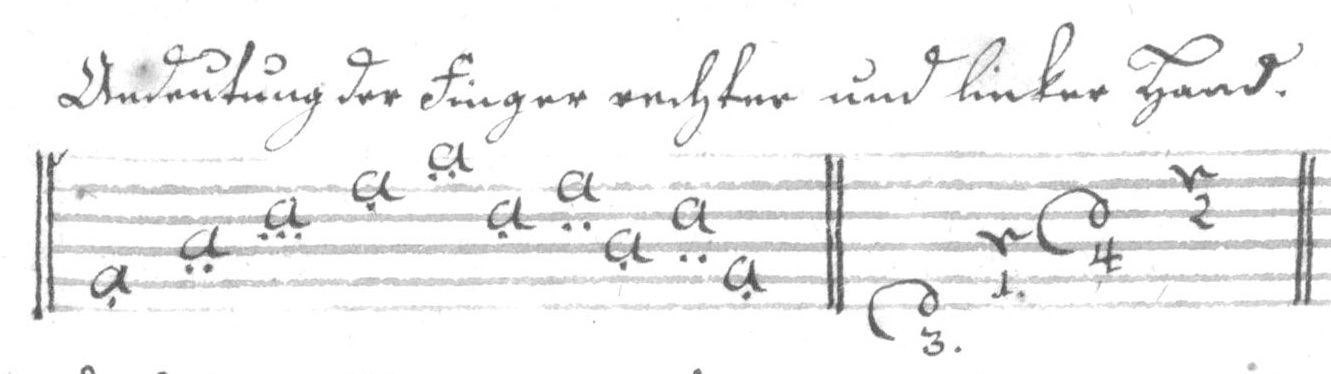 Andeutung der Finger rechter und linker Hand.
a a a a a a a a a a r r
3. 1. 4 2